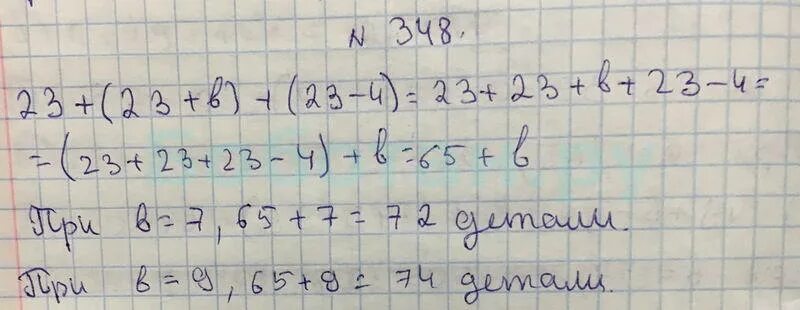 N 348.
23 + (23 + b) + (23 - 4) = 23 + 23 + b + 23 - 4 =
= (23 + 23 + 23 - 4) + b = 65 + b
При b = 7, 65 + 7 = 72 детали.
При b = 9, 65 + 9 = 74 детали.